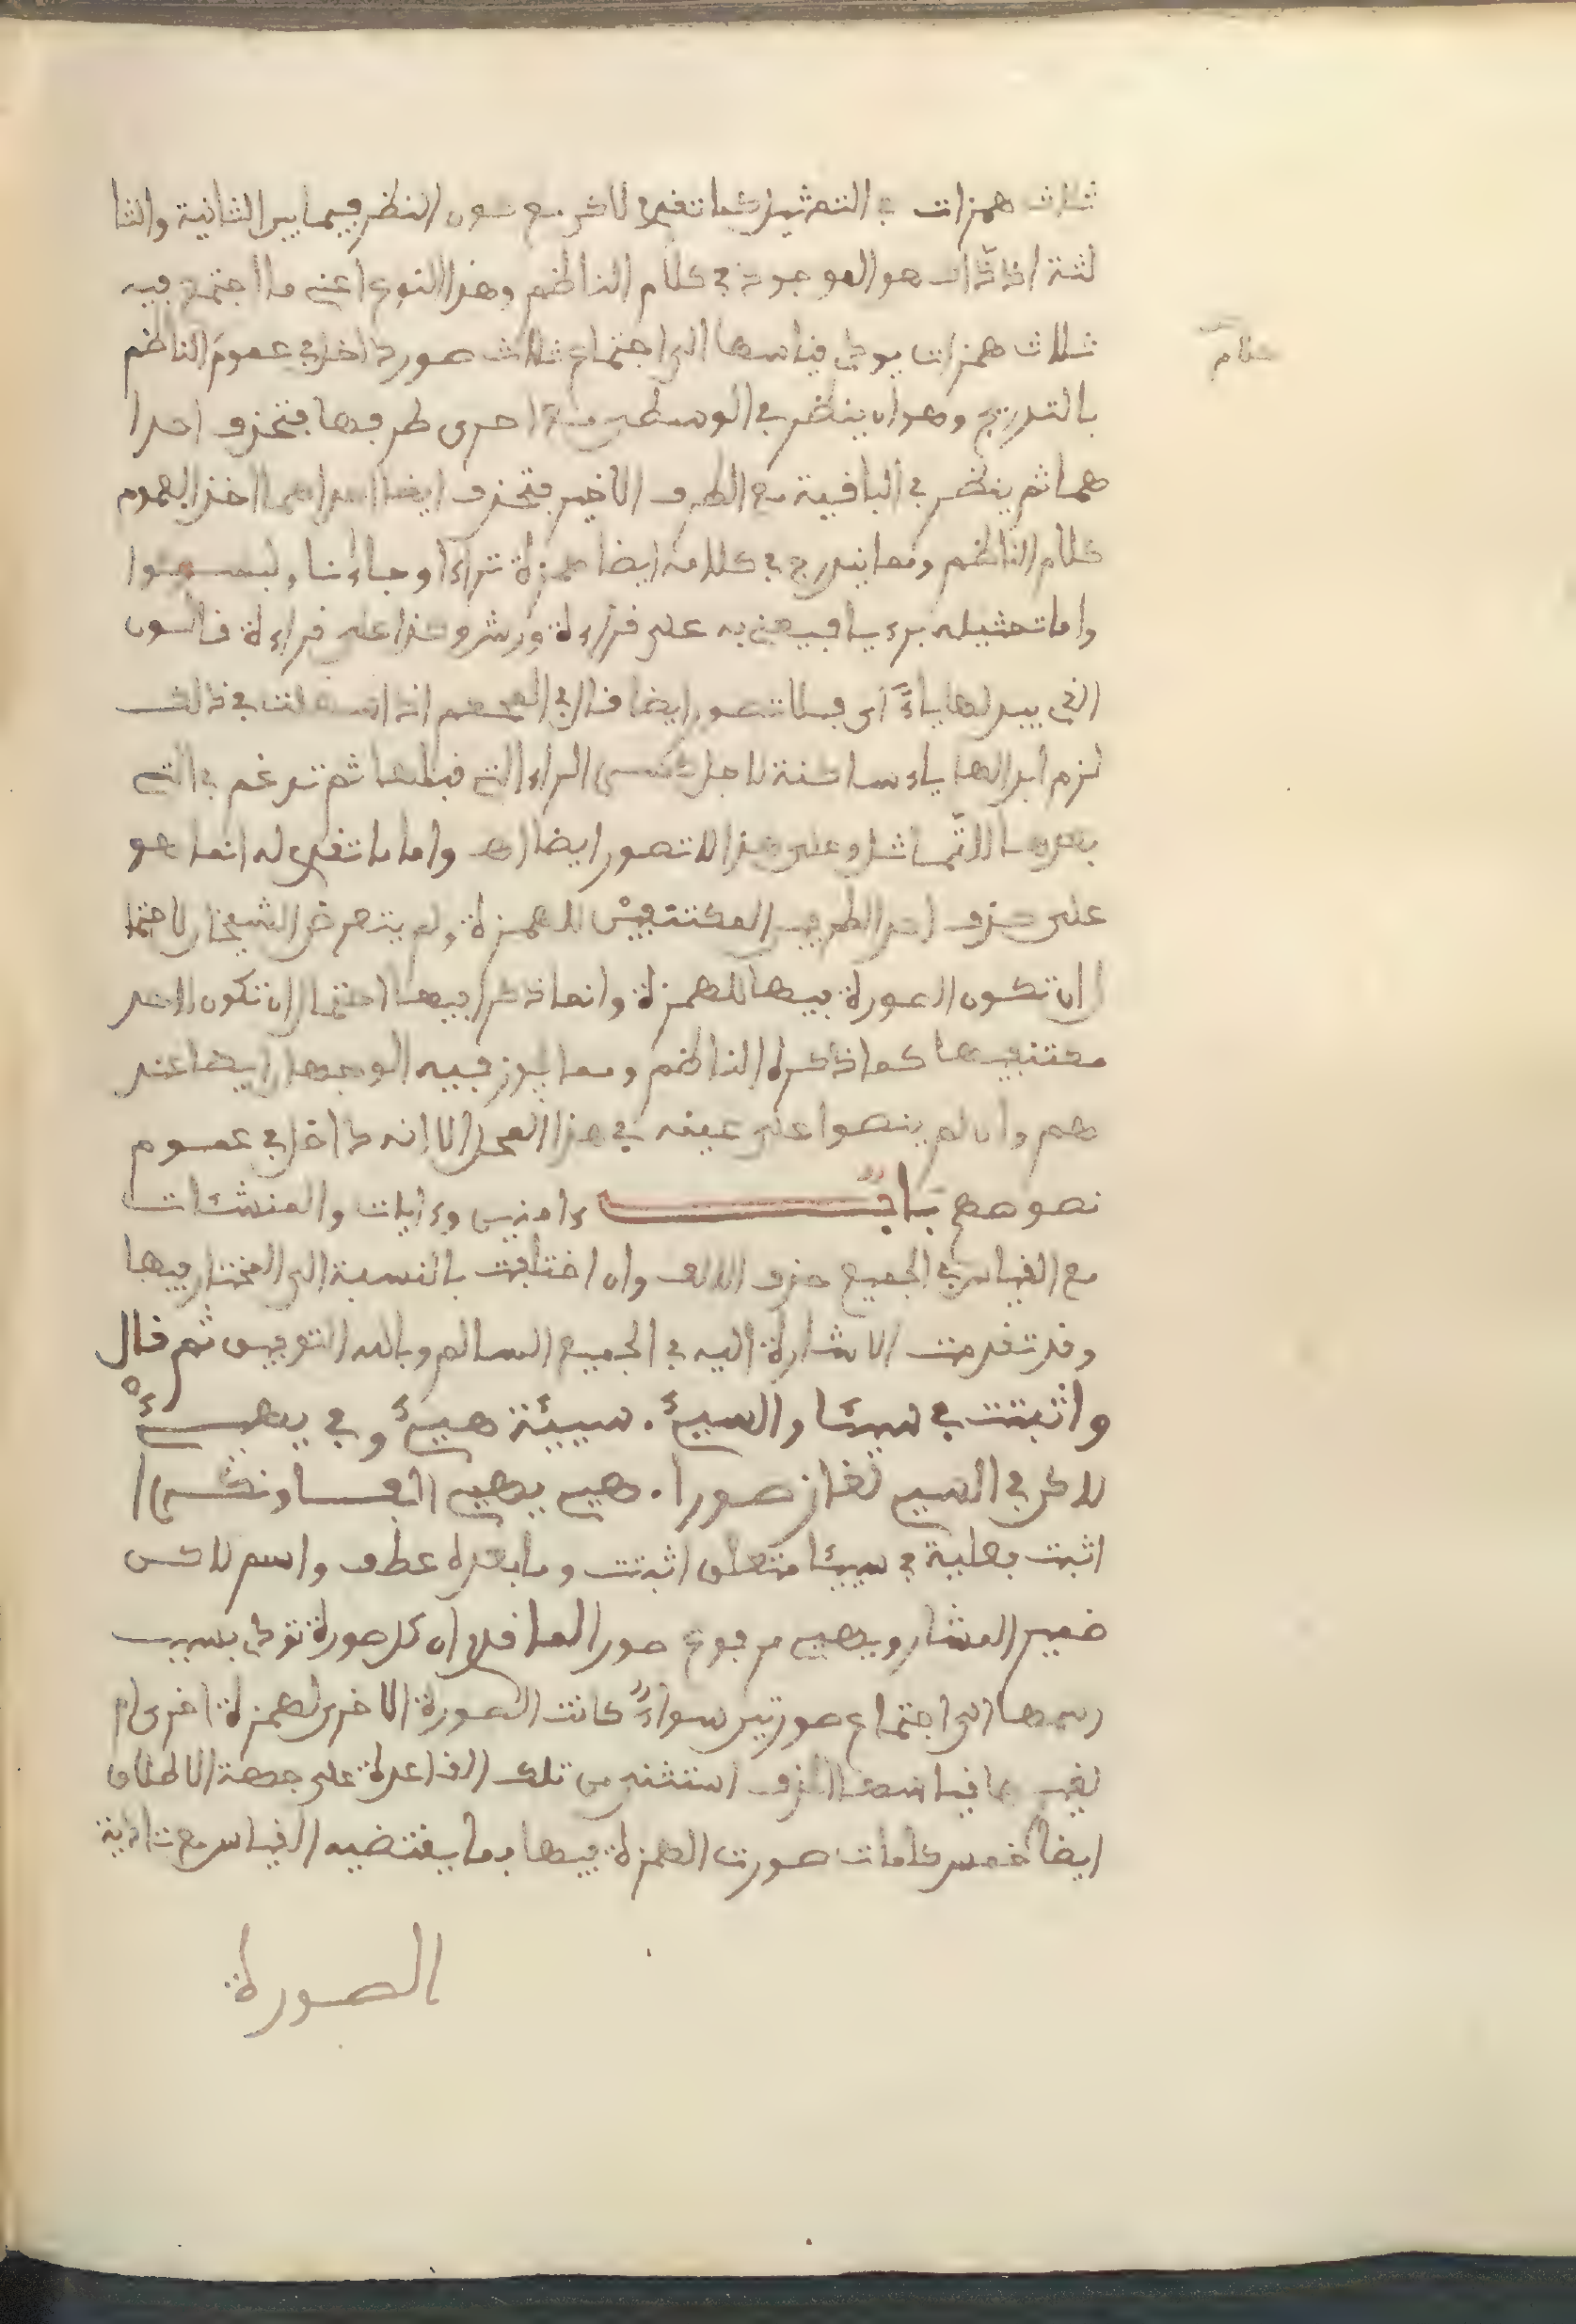 ثلاث همزات في التمثيل كما تقدم لاكن مع كون النظر فيما بين الثانية والثا
لثة اذ ذاك هو الموجود في كلام الناظم وهذا النوع اعني ما اجتمع فيه
ثلاث همزات يودي قياسها الى اجتماع ثلاث صور داخل في عموم الناظم
كلام
بالتدريج وهو ان ينظر في الوسطى مع احدى طرفيها فتحذف احدا
هما ثم ينظر في الباقية مع الطرف الاخير فتحذف ايضا احداهما اخذا بعموم
كلام الناظم ومما يندرج في كلامه ايضا همزة تراءا وجاءنا وليسوءوا
واما تمثيله برءيا فيعني به على قراءة ورش وهذا على قراءة قالون
الذي يبدلها ياءً اى فلا تصور ايضا قال في المحكم اذا سهلت في ذالك
لزم ابدالها ياء ساكنة لاجل كسر الراء التي قبلها ثم تدغم في التي
بعدها للتماثل وعلى هذا لا تصور ايضا اهـ واما ما تقدم له انما هو
على حذف احد الطرفين المكتنفين للهمزة ولم يتعرض الشيخان لاحتما
ل ان تكون الصورة فيها للهمزة وانما ذكرا فيها احتمال ان تكون لاحد
مكتنفيها كما ذكره الناظم ومما يجوز فيه الوجهان ايضا عند
هم وان لم ينصوا على عينه في هذا المحل الا انه داخل في عموم
نصوصهم باب ءامنين وءايات والمنشئات
مع القياس في الجميع حذف الالف وان اختلفت بالنسبة الى المختار فيها
وقد تقدمت الاشارة اليه في الجمع السالم وبالله التوفيق ثم قال
واثبتت في سيئا والسيئ . سيئة هيئ وفي يهيئ
لاكن في السيئ لغاز صورا . هيئ يهيئ الفا ونكرا
اثبت فعلية في سيئا متعلق اثبتت وما بعده عطف واسم لاكن
ضمير المشار ويهيئ مرفوع صور لما قدم ان كل صورة تودي بسبب
رسمها الى اجتماع صورتين سواءً كانت الصورة الاخرى لهمزة اخرى ام
لغيرها قياسها الحذف استثنى من تلك القاعدة على جهة الاطلاق
ايضا خمس كلمات صورت الهمزة فيها بما يقتضيه القياس مع تادية
الصورة